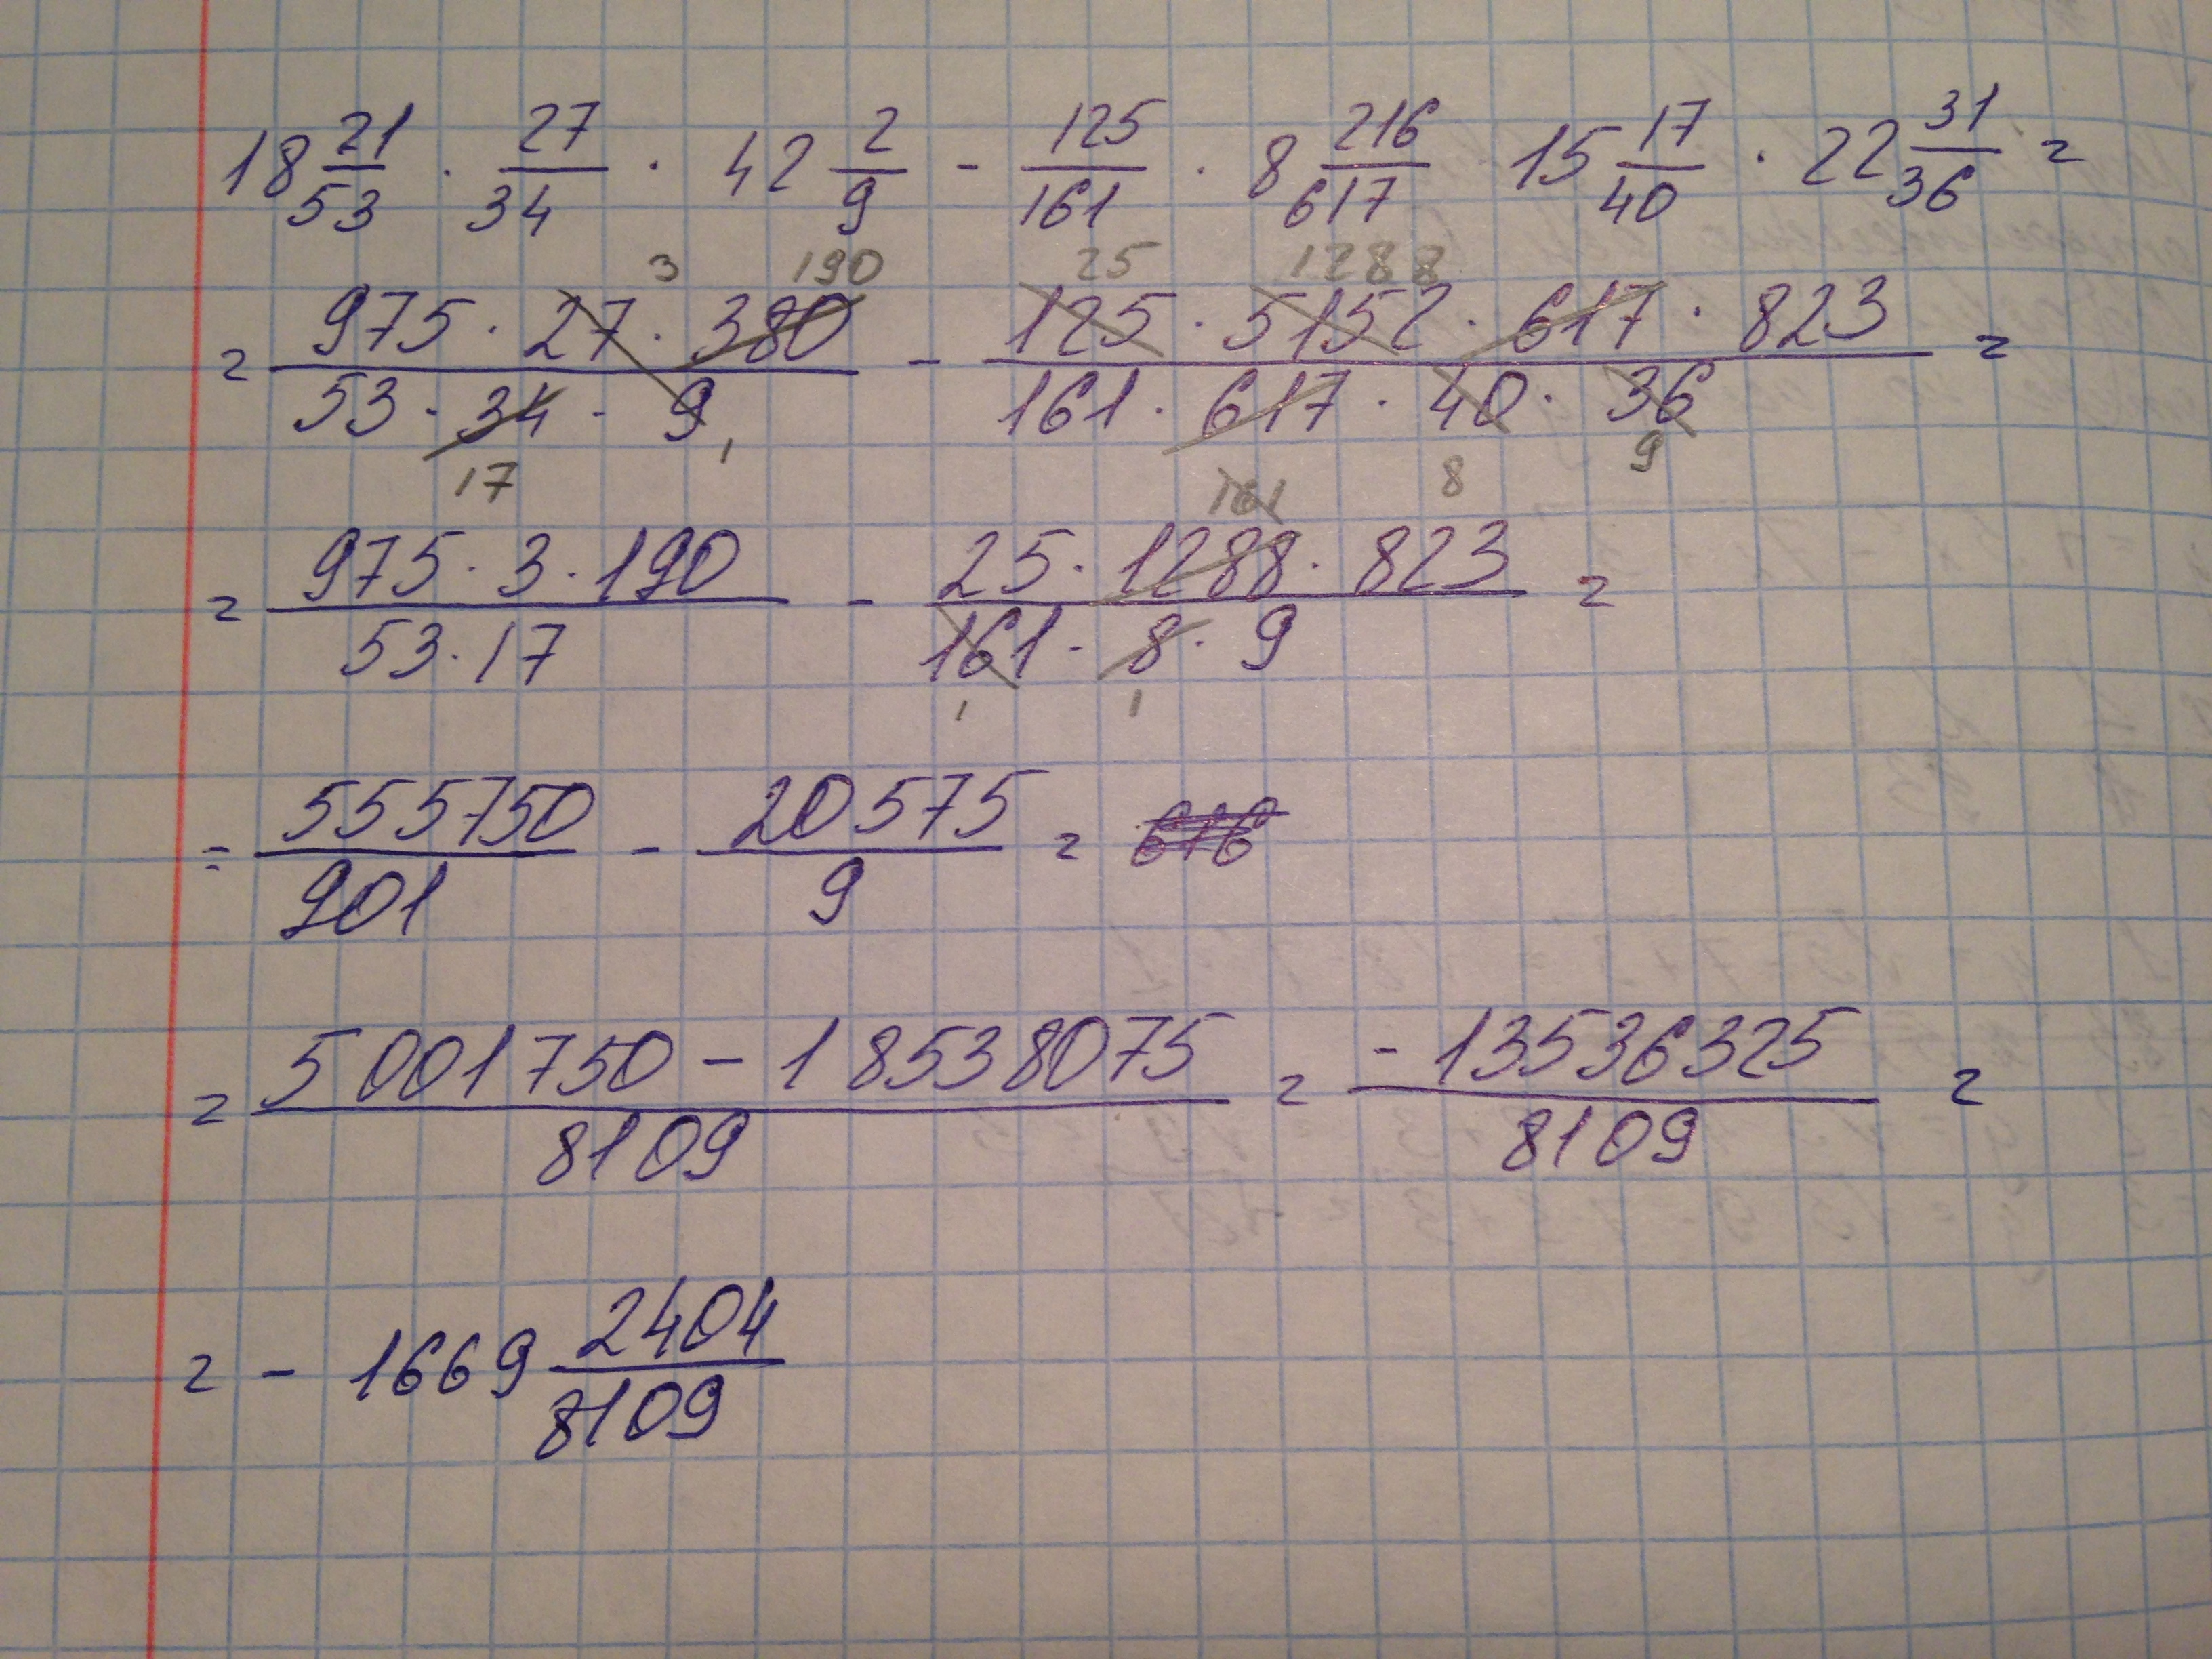 18 21/53 · 27/34 · 42 2/9 - 125/161 · 8 216/617 15 17/40 · 22 31/36 =
3 190 25 1288
= 975 · 27 · 380 / 53 · 34 · 9 - 125 · 5152 · 617 · 823 / 161 · 617 · 40 · 36 =
17 1 8 9
161
= 975 · 3 · 190 / 53 · 17 - 25 · 1288 · 823 / 161 · 8 · 9 =
1 1
= 555750/901 - 20575/9 = 616
= 5001750 - 18538075 / 8109 = -13536325 / 8109 =
= - 1669 2404/8109